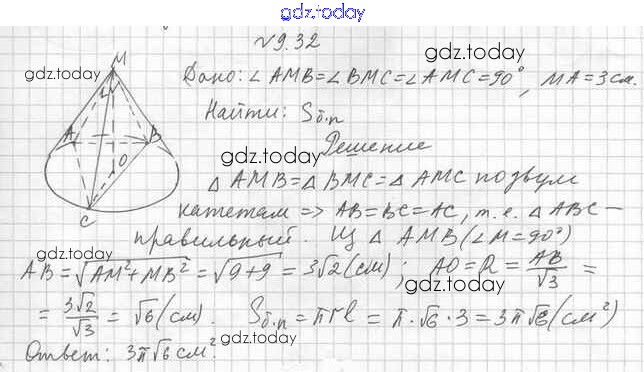 gdz.today
√9.32
gdz.today
gdz.today
M
Дано: ∠AMB=∠BMC=∠AMC=90°, MA=3см.
Найти: Sб.п
A B
O
C
Решение
gdz.today
△AMB=△BMC=△AMC по двум
катетам => AB=BC=AC, т.е. △ABC –
правильный. Из △AMB(∠M=90°)
gdz.today
gdz.today
AB=√AM²+MB² = √9+9 = 3√2(см); AO=R=AB/√3 =
= 3√2/√3 = √6(см). Sб.п=πrl = π·√6·3=3π√6(см²)
gdz.today
Ответ: 3π√6см².